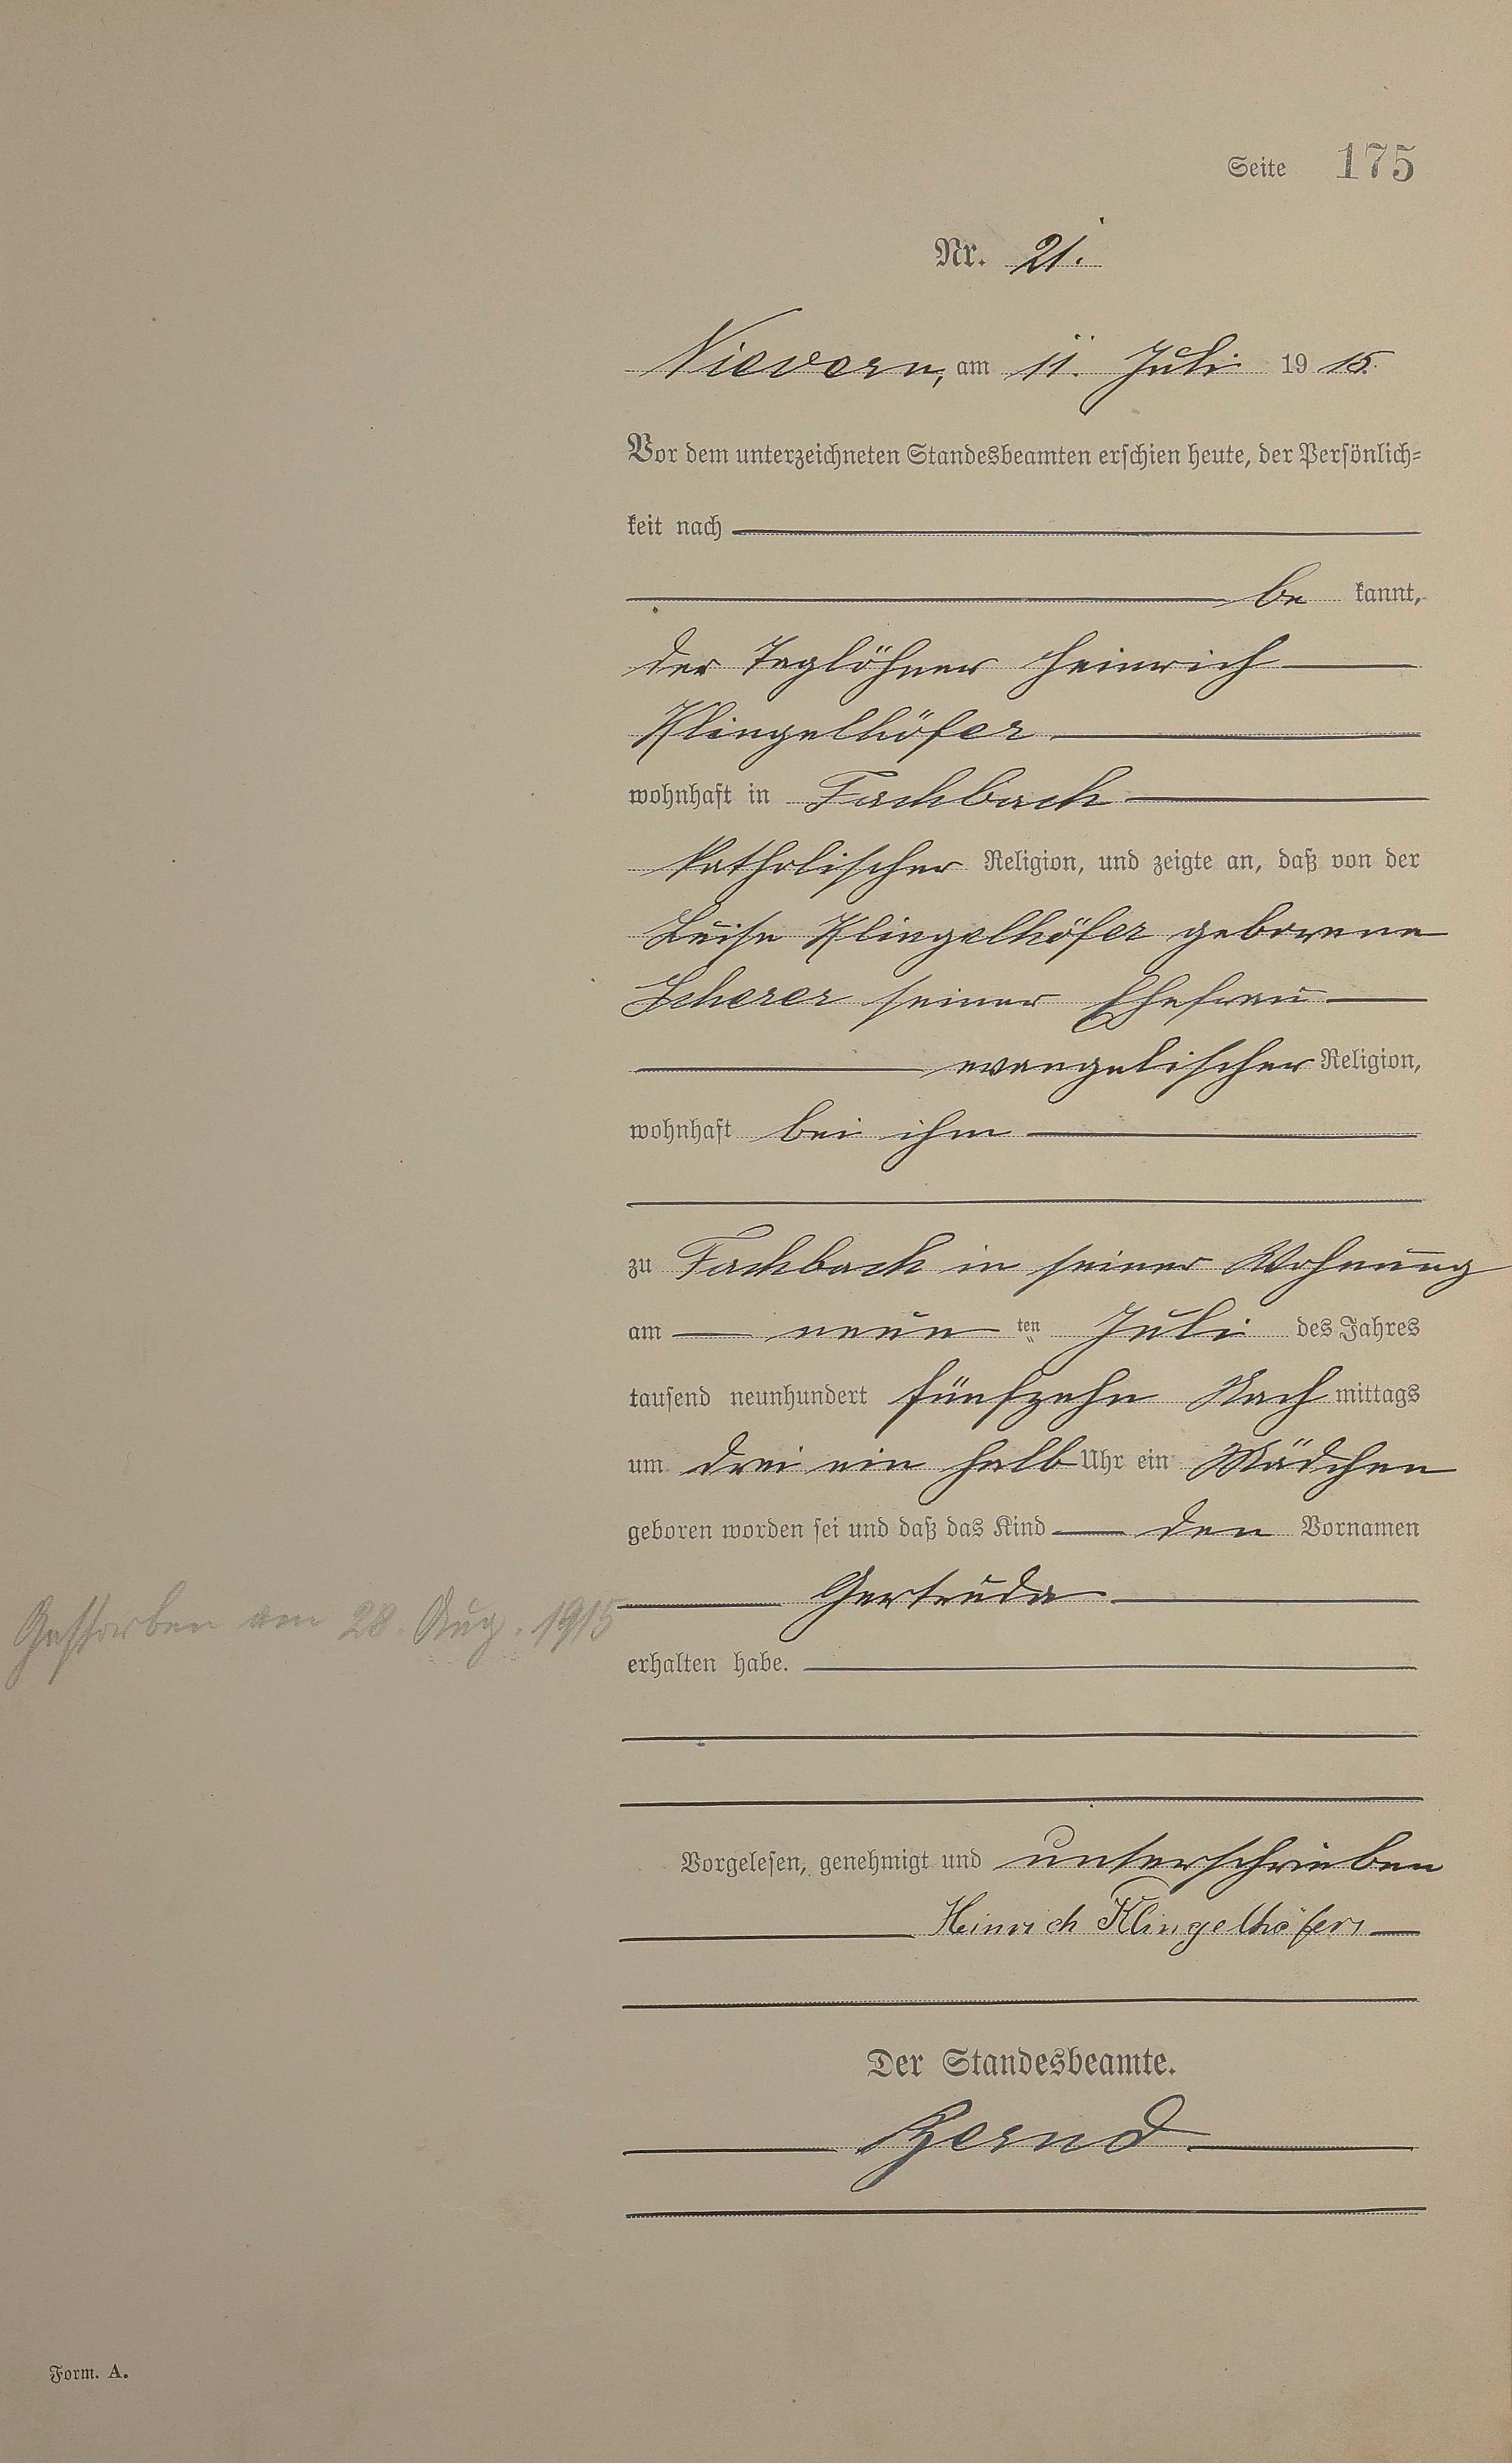 Seite 175
Nr. 21.
Nievern, am 11. Juli 1915.
Vor dem unterzeichneten Standesbeamten erschien heute, der Persönlich=
keit nach
be kannt,
der Taglöhner Heinrich
Klingelhöfer
wohnhaft in Fachbach
katholischer Religion, und zeigte an, daß von der
Luise Klingelhöfer geborene
Scherer seiner Ehefrau
evangelischer Religion,
wohnhaft bei ihm
zu Fachbach in seiner Wohnung
am neun ten Juli des Jahres
tausend neunhundert fünfzehn Nach mittags
um drei ein halb Uhr ein Mädchen
geboren worden sei und daß das Kind den Vornamen
Gertruda
Gestorben am 28. Aug. 1915
erhalten habe.
Vorgelesen, genehmigt und unterschrieben
Heinrich Klingelhöfer
Der Standesbeamte.
Form. A.